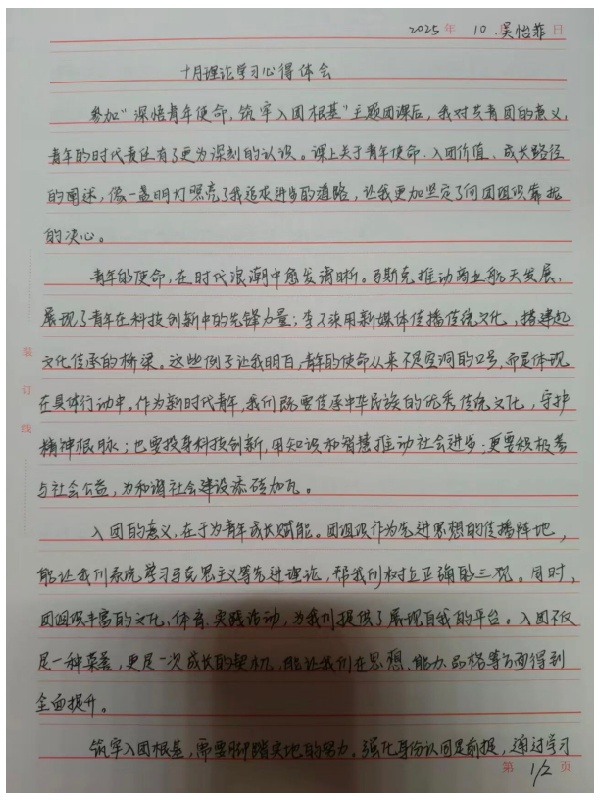 2025年 10.吴怡菲日
十月理论学习心得体会
参加“深悟青年使命,筑牢入团根基”主题团课后,我对共青团的意义、
青年的时代责任有了更为深刻的认识。课上关于青年使命、入团价值、成长路径
的阐述,像一盏明灯照亮了我追求进步的道路,让我更加坚定了向团组织靠拢
的决心。
青年的使命,在时代浪潮中愈发清晰。马斯克推动商业航天发展,
展现了青年在科技创新中的先锋力量;李子柒用新媒体传播传统文化,搭建起
文化传承的桥梁。这些例子让我明白,青年的使命从来不是空洞的口号,而是体现
在具体行动中。作为新时代青年,我们既要传承中华民族的优秀传统文化,守护
精神根脉;也要投身科技创新,用知识和智慧推动社会进步;更要积极参
与社会公益,为和谐社会建设添砖加瓦。
入团的意义,在于为青年成长赋能。团组织作为先进思想的传播阵地,
能让我们系统学习马克思主义等先进理论,帮我们树立正确的三观。同时,
团组织丰富的文化、体育、实践活动,为我们提供了展现自我的平台。入团不仅
是一种荣誉,更是一次成长的契机,能让我们在思想、能力、品格等方面得到
全面提升。
筑牢入团根基,需要脚踏实地的努力。强化身份认同是前提,通过学习
装
订
线
第 1/2 页